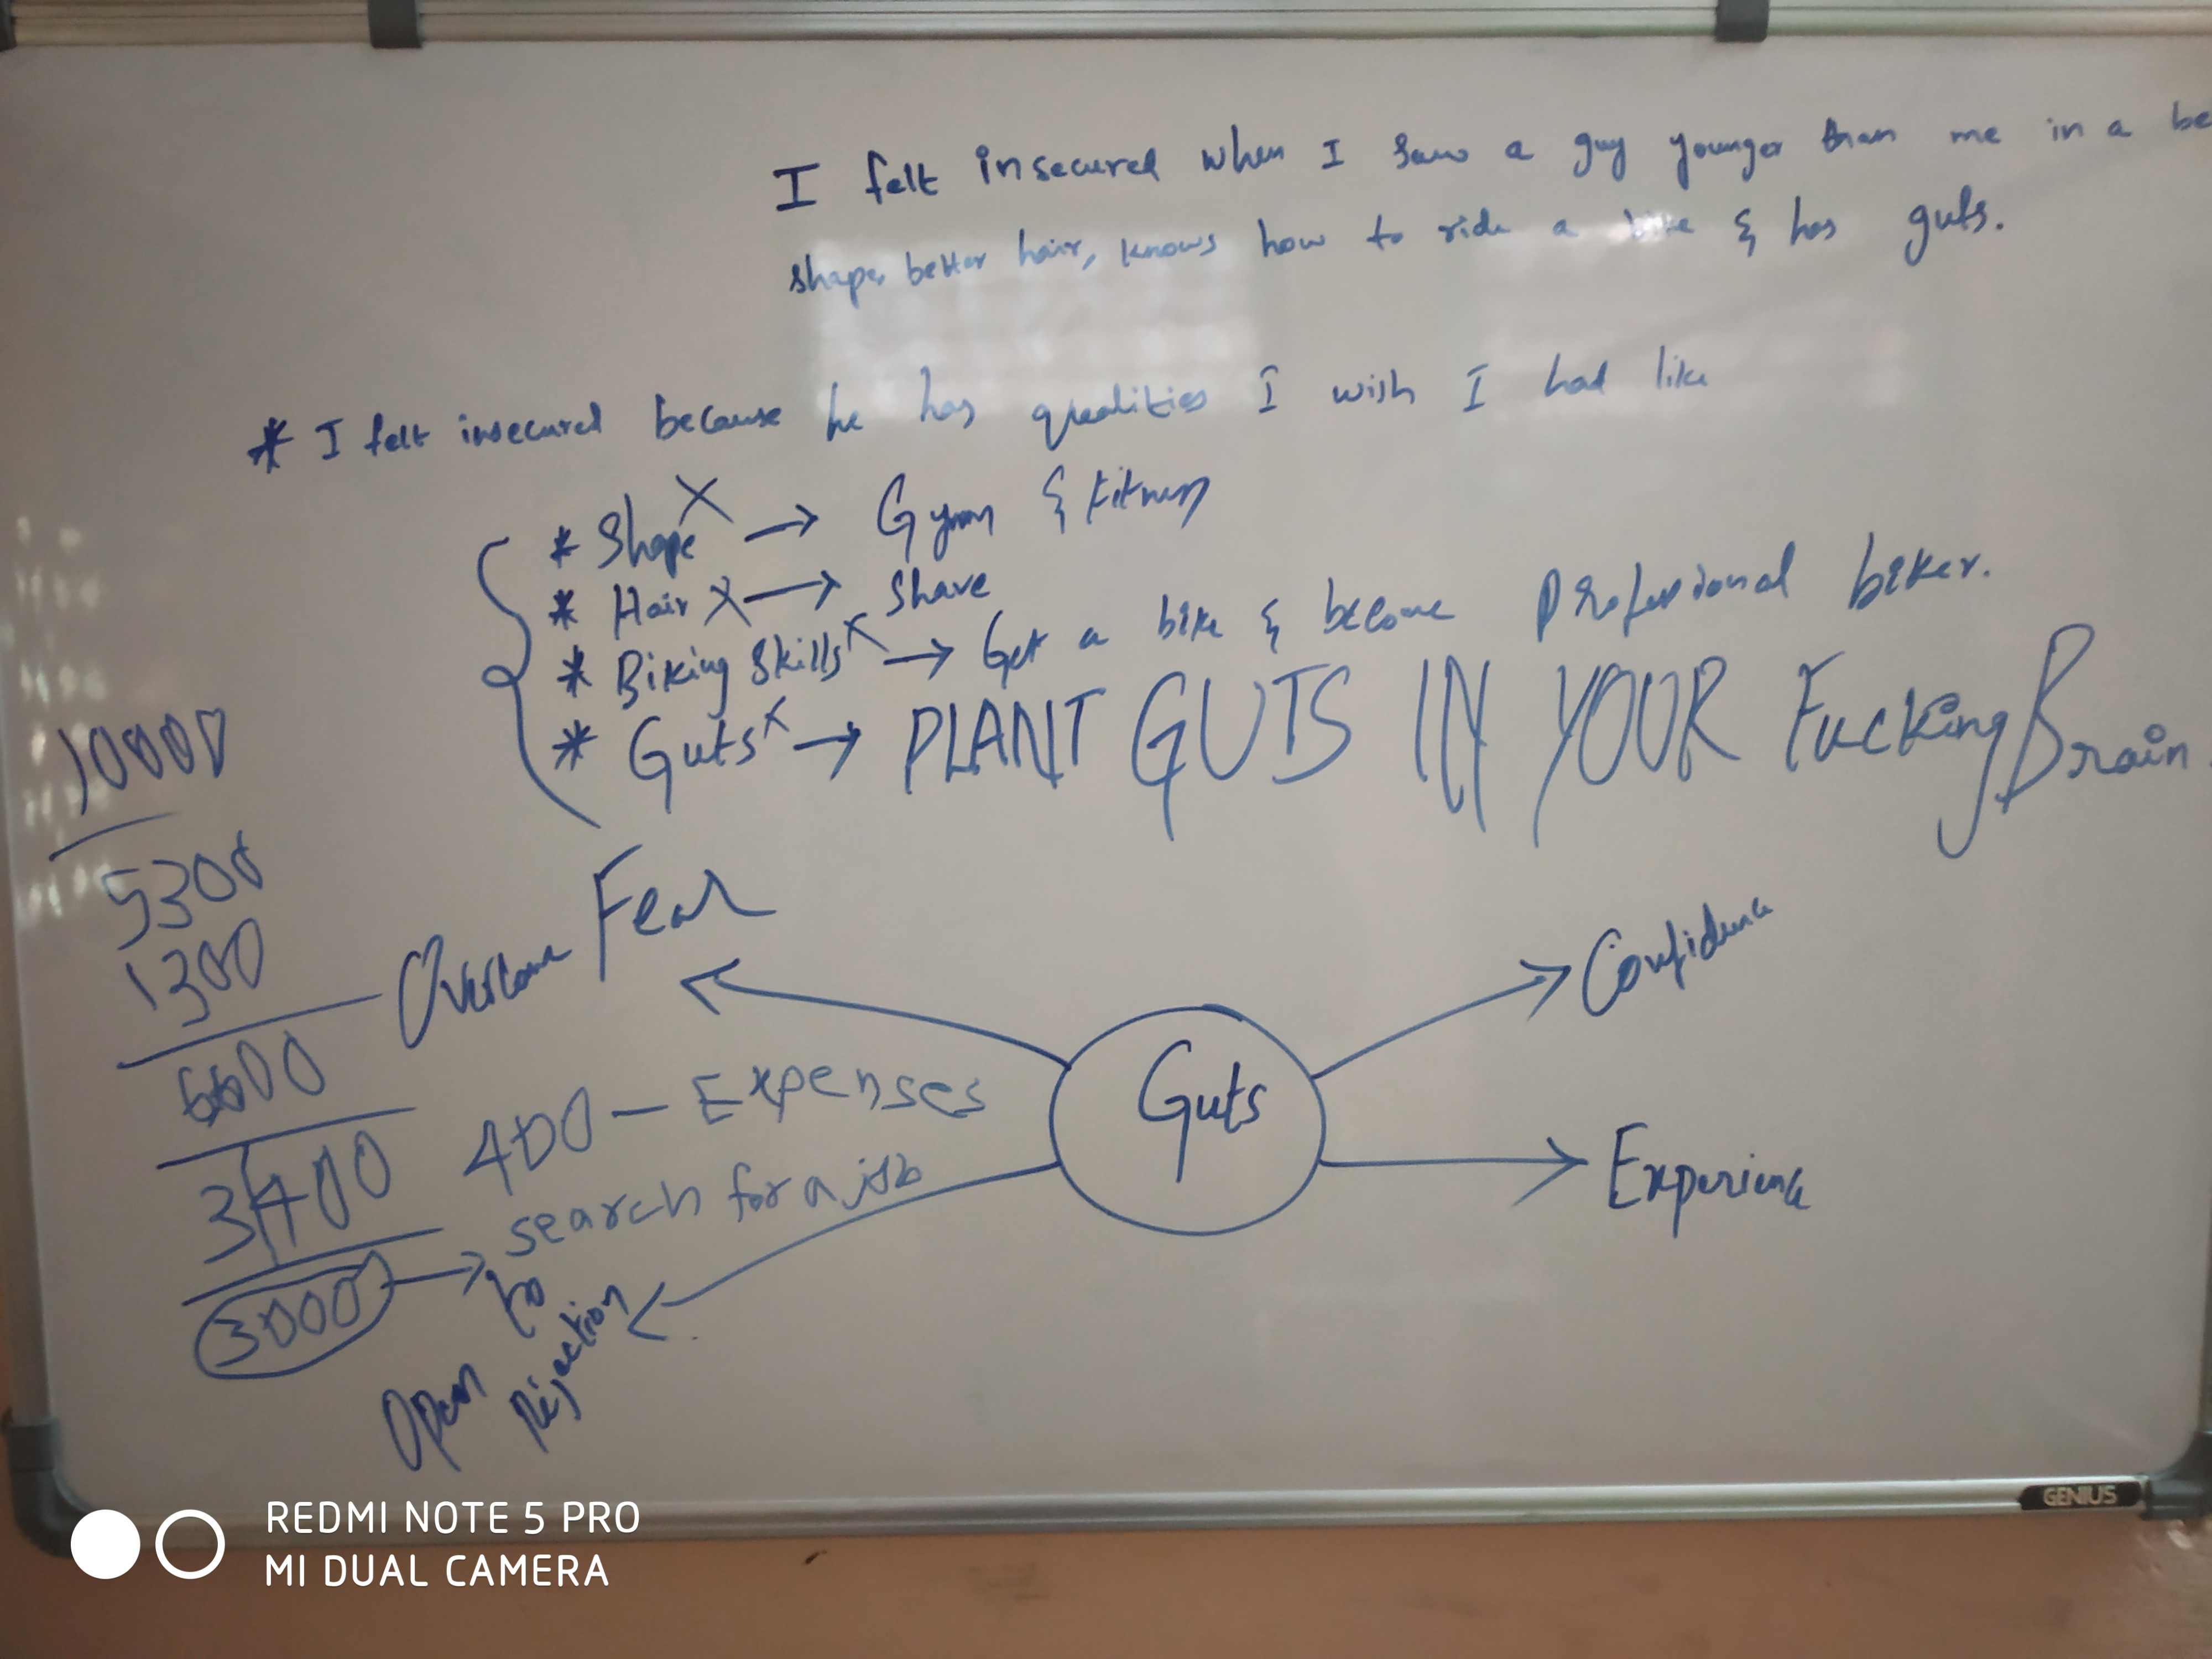 I felt insecured when I saw a guy younger than me in a be
shape, better hair, knows how to ride a bike & has guts.
* I felt insecured because he has qualities I wish I had like
* Shape X → Gym & Fitness
* Hair X → Shave
* Biking Skills X → Get a bike & become Professional biker.
* Guts X → PLANT GUTS IN YOUR Fucking Brain.
10000
5300
1300
6600
3400
3000 → search for a job
400 - Expenses
Overcome Fear
Guts
Confidence
Experience
Open to Rejection
GENIUS
REDMI NOTE 5 PRO
MI DUAL CAMERA